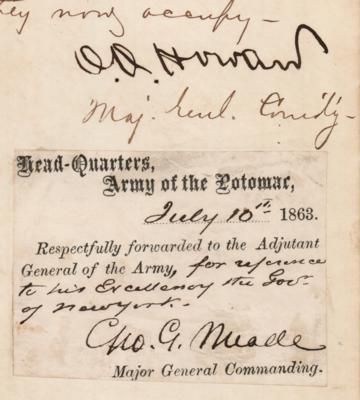 they now occupy –
O.O. Howard
Maj. Genl. Comdg –
Head-Quarters,
Army of the Potomac,
July 10th 1863.
Respectfully forwarded to the Adjutant
General of the Army, for reference
to his Excellency the Govr.
of New York. –
Geo. G. Meade
Major General Commanding.